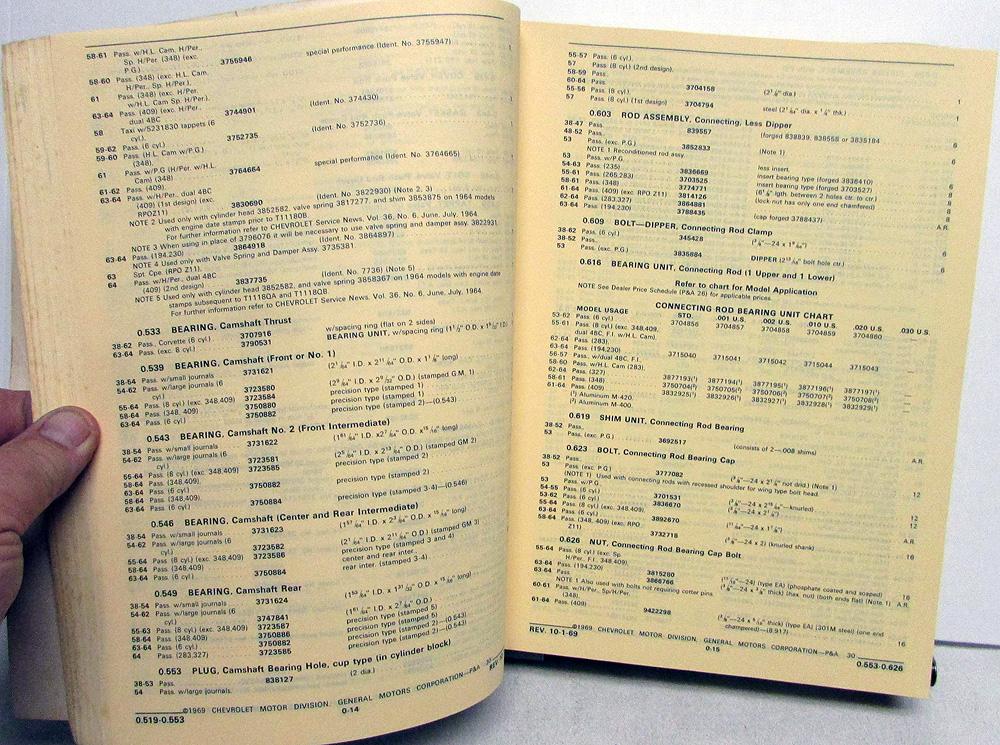 58-61 Pass. w/H.L. Cam. H/Per.,
Sp. H/Per. (348) (exc.
P.G.) 3755946 special performance (Ident. No. 3755947) 1
58-60 Pass. (348) (exc. H.L. Cam.
H/Per., Sp. H/Per.).
61 Pass. (348) (exc. H/Per.
w/H.L. Cam Sp. H/Per.).
63-64 Pass. (409) (exc. H/Per.,
dual 4BC 3744901 (Ident. No. 374430) 1
58 Taxi w/5231830 tappets (6
cyl.).
59-62 Pass. (6 cyl.) 3752735 (Ident. No. 3752736)
59-60 Pass. (H.L. Cam w/P.G.)
(348).
61 Pass. w/P.G (H/Per. w/H.L.
Cam) (348) 3764664 special performance (Ident. No. 3764665)
61-62 Pass. (409).
63-64 Pass. w/H/Per., dual 4BC
(409) (1st design) (exc.
RPOZ11) 3830690 (Ident. No. 3822930) (Note 2, 3)
NOTE 2 Used only with cylinder head 3852582, valve spring 3817277, and shim 3853875 on 1964 models
with engine date stamps prior to T1118QB.
For further information refer to CHEVROLET Service News. Vol. 36, No. 6, June, July, 1964.
NOTE 3 When using in place of 3796076 it will be necessary to use valve spring and damper assy. 3822931.
63-64 Pass. (194,230) 3864918 (Ident. No. 3864897)
NOTE 4 Used only with Valve Spring and Damper Assy. 3735381.
63 Spt. Cpe. (RPO Z11).
64 Pass. w/H/Per., dual 4BC
(409) (2nd design) 3837735 (Ident. No. 7736) (Note 5)
NOTE 5 Used only with cylinder head 3852582, and valve spring 3858367 on 1964 models with engine date
stamps subsequent to T1118QA and T1118QB.
For further information refer to CHEVROLET Service News, Vol. 36, No. 6, June, July, 1964.
0.533 BEARING, Camshaft Thrust
38-62 Pass., Corvette (6 cyl.) 3707916 w/spacing ring (flat on 2 sides)
63-64 Pass. (exc. 8 cyl.) 3790531 BEARING UNIT, w/spacing ring
0.539 BEARING, Camshaft (Front or No. 1)
38-54 Pass. w/small journals 3731621
54-62 Pass. w/large journals (6
cyl.) 3723580
55-64 Pass. (8 cyl.) (exc. 348,409) 3723584 precision type (stamped G.M, 1)
58-64 Pass. (348, 409) 3750880 precision type (stamped 1)
63-64 Pass. (6 cyl.) 3750882 precision type (stamped 2)—(0.543)
0.543 BEARING, Camshaft No. 2 (Front Intermediate)
38-54 Pass. w/small journals 3731622
54-62 Pass. w/large journals (6
cyl.) 3723581
55-64 Pass. (8 cyl.) (exc. 348,409) 3723585 precision type (stamped 2)
58-64 Pass. (348,409).
63-64 Pass. (6 cyl.) 3750882 precision type (stamped 2)
58-64 Pass. (348,409).
63-64 Pass. (6 cyl.) 3750884 precision type (stamped 3-4)—(0.546)
0.546 BEARING, Camshaft (Center and Rear Intermediate)
38-54 Pass. w/small journals 3731623
54-62 Pass. w/large journals (6
cyl.) 3723582
55-64 Pass. (8 cyl.) (exc. 348,409) 3723586 precision type (stamped 3 and 4)
58-64 Pass. (348,409) center and rear inter.
63-64 Pass. (6 cyl.) 3750884 rear inter. (stamped 3-4)
0.549 BEARING, Camshaft Rear
38-54 Pass. w/small journals 3731624
54-62 Pass. w/large journals (6
cyl.) 3747841
55-63 Pass. (8 cyl.) (exc. 348,409) 3723587 precision type (stamped 5)
58-64 Pass. (348,409) 3750886 precision type (stamped 5)
63-64 Pass. (6 cyl.) 3750882 precision type (stamped 2)—(0.543)
64 Pass. (283,327) 3723585 precision type (stamped 2)—(0.543)
0.553 PLUG, Camshaft Bearing Hole, cup type (in cylinder block)
38-53 Pass. 838127 (2 dia.)
54 Pass. w/large journals.
©1969 CHEVROLET MOTOR DIVISION, GENERAL MOTORS CORPORATION—P&A 30
0.519-0.553 0-14
55-57 Pass. (6 cyl.).
57 Pass. (8 cyl.) (2nd design).
58-59 Pass.
60-64 Pass. 3704158 1
55-56 Pass. (8 cyl.).
57 Pass. (8 cyl.) (1st design) 3704794 1
0.603 ROD ASSEMBLY, Connecting, Less Dipper
38-47 Pass. 839557 (forged 838839, 838558 or 3835184 6
48-52 Pass.
53 Pass. (exc. P.G.) 3852833 (Note 1) 6
NOTE 1 Reconditioned rod assy.
53 Pass. w/P.G.
54-63 Pass. (235) 3836669 less insert.
55-61 Pass. (265,283) 3703525 insert bearing type (forged 3836410) 6
58-61 Pass. (348) 3774771 insert bearing type (forged 3703527) 8
61-64 Pass. (409) (exc. RPO Z11) 3814126
62-64 Pass. (283,327) 3864881 (lock nut has only one end chamfered)
63-64 Pass. (194,230) 3788435 (cap forged 3788437)
0.609 BOLT—DIPPER, Connecting Rod Clamp
38-62 Pass. (6 cyl.) 345428
38-52 Pass.
53 Pass. (exc. P.G.) 3835884
0.616 BEARING UNIT, Connecting Rod (1 Upper and 1 Lower)
Refer to chart for Model Application
NOTE See Dealer Price Schedule (P&A 26) for applicable prices.
CONNECTING ROD BEARING UNIT CHART
MODEL USAGE STD. .001 U.S. .002 U.S. .010 U.S. .020 U.S. .030 U.S.
53-62 Pass. (6 cyl.) 3704856 3704857 3704858 3704859 3704860 —
55-61 Pass. (8 cyl.) (exc. 348,409,
dual 4BC, F.I. w/H.L. Cam).
62-64 Pass. (283).
63-64 Pass. (194,230) 3715040 3715041 3715042 3715044 3715043
56-57 Pass. w/dual 4BC, F.I.
58-60 Pass. w/H.L. Cam (283)
62-64 Pass. (327) 3877193(¹) 3877194(¹) 3877195(¹) 3877196(¹) 3877197(¹)
58-61 Pass. (348) 3750704(²) 3750705(²) 3750706(²) 3750707(²) 3750708(²)
61-64 Pass. (409) 3832925(¹) 3832926(¹) 3832927(¹) 3832928(¹) 3832929(¹)
(¹) Aluminum M-420.
(²) Aluminum M-400.
0.619 SHIM UNIT, Connecting Rod Bearing
38-52 Pass.
53 Pass. (exc. P.G.) 3692517 (consists of 2—.008 shims) A.R.
0.623 BOLT, Connecting Rod Bearing Cap
38-52 Pass.
53 Pass. (exc P.G.) 3777082 12
(NOTE 1) Used with connecting rods with recessed shoulder for wing type bolt head.
53 Pass. w/P.G.
54-55 Pass. (6 cyl.) 3701531 12
53-62 Pass. (6 cyl.) 3836670 12
55-64 Pass. (8 cyl.) (exc. 348,409)
63-64 Pass. (6 cyl.) 3892670 A.R.
58-64 Pass. (348, 409) (exc. RPO
Z11) 3732718 16
0.626 NUT, Connecting Rod Bearing Cap Bolt
55-64 Pass. (8 cyl.) (exc. Sp.
H/Per., F.I. 348,409) 3815280 16
63-64 Pass. (194,230) 3866766 A.R.
NOTE 1 Also used with bolts not requiring cotter pins
60-61 Pass. w/H/Per., Sp/H/Per.
(348).
61-64 Pass. (409) 9422298 16
©1969 CHEVROLET MOTOR DIVISION, GENERAL MOTORS CORPORATION—P&A 30
REV. 10-1-69 0-15 0.553-0.626